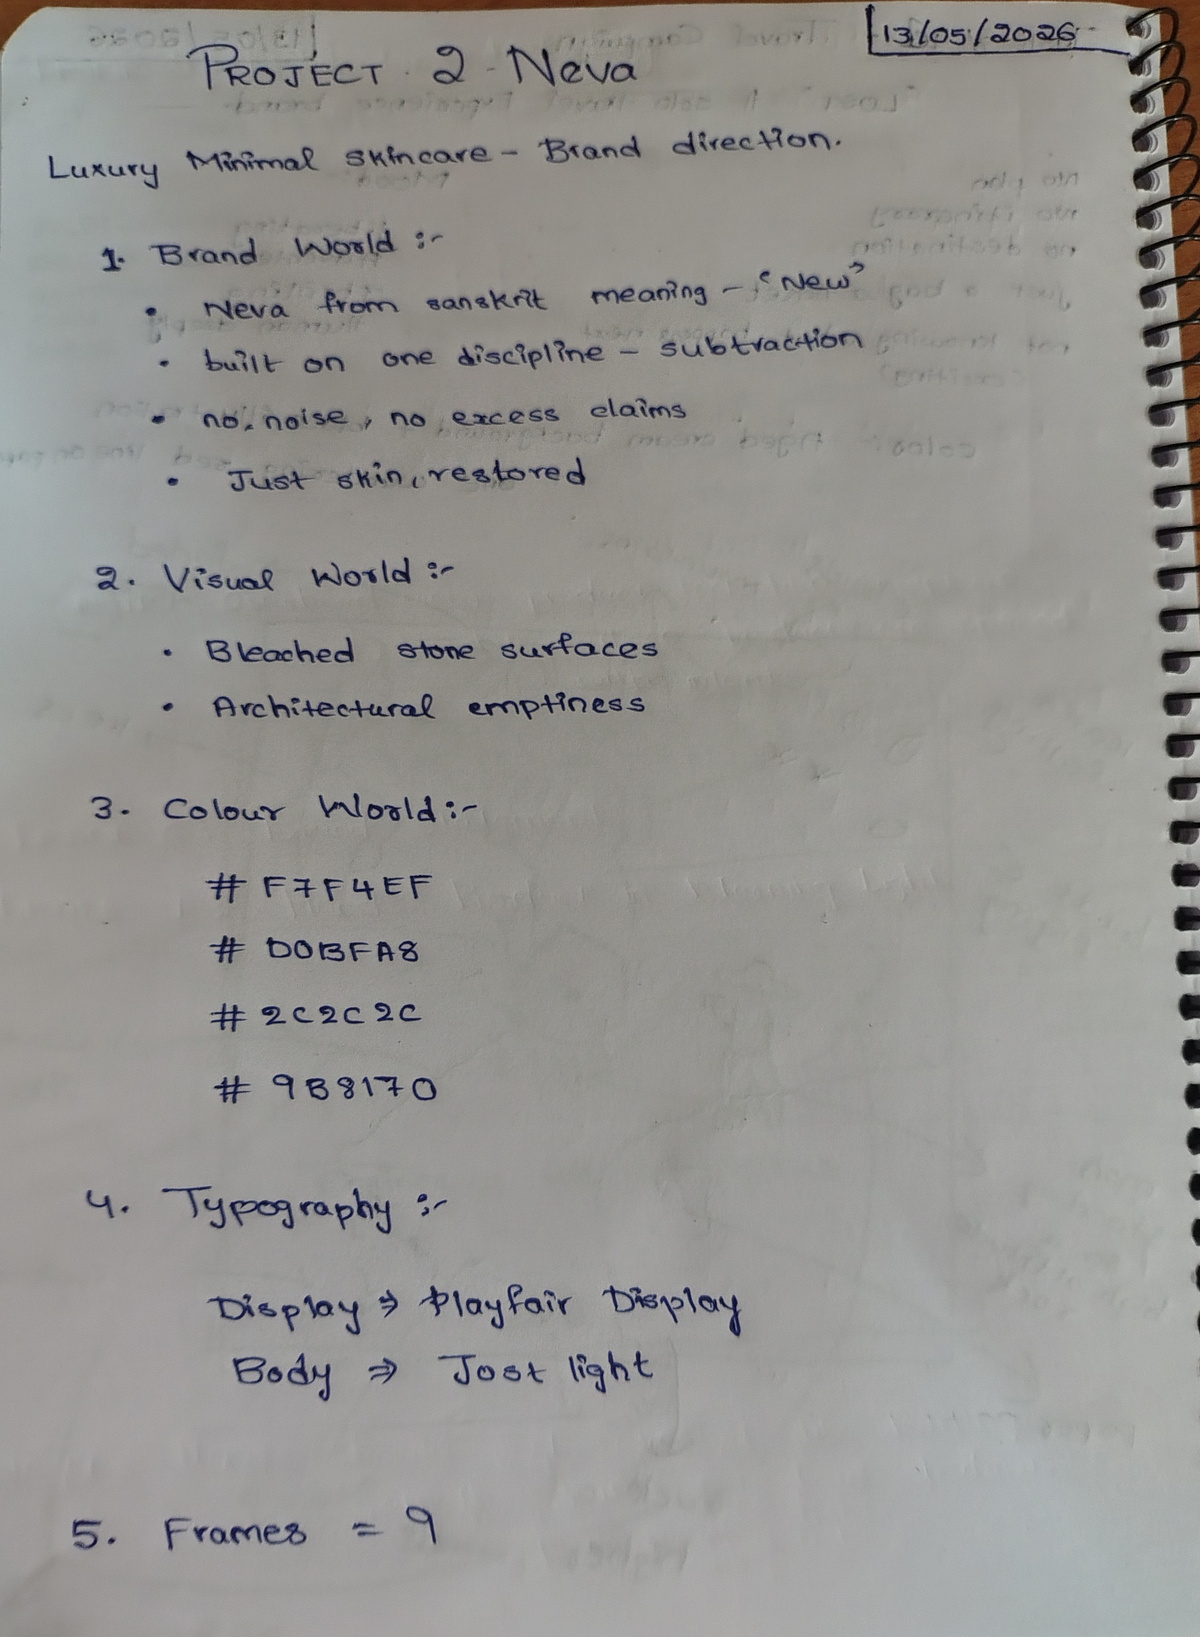 13/05/2026
PROJECT 2 - Neva
Luxury Minimal skincare - Brand direction.
1. Brand World :-
• Neva from sanskrit meaning - "New"
• built on one discipline - subtraction
• no noise, no excess claims
• Just skin, restored
2. Visual World :-
• Bleached stone surfaces
• Architectural emptiness
3. Colour World :-
# F7F4EF
# D0BFA8
# 2C2C2C
# 9B8170
4. Typography :-
Display ⇒ Playfair Display
Body ⇒ Jost light
5. Frames = 9